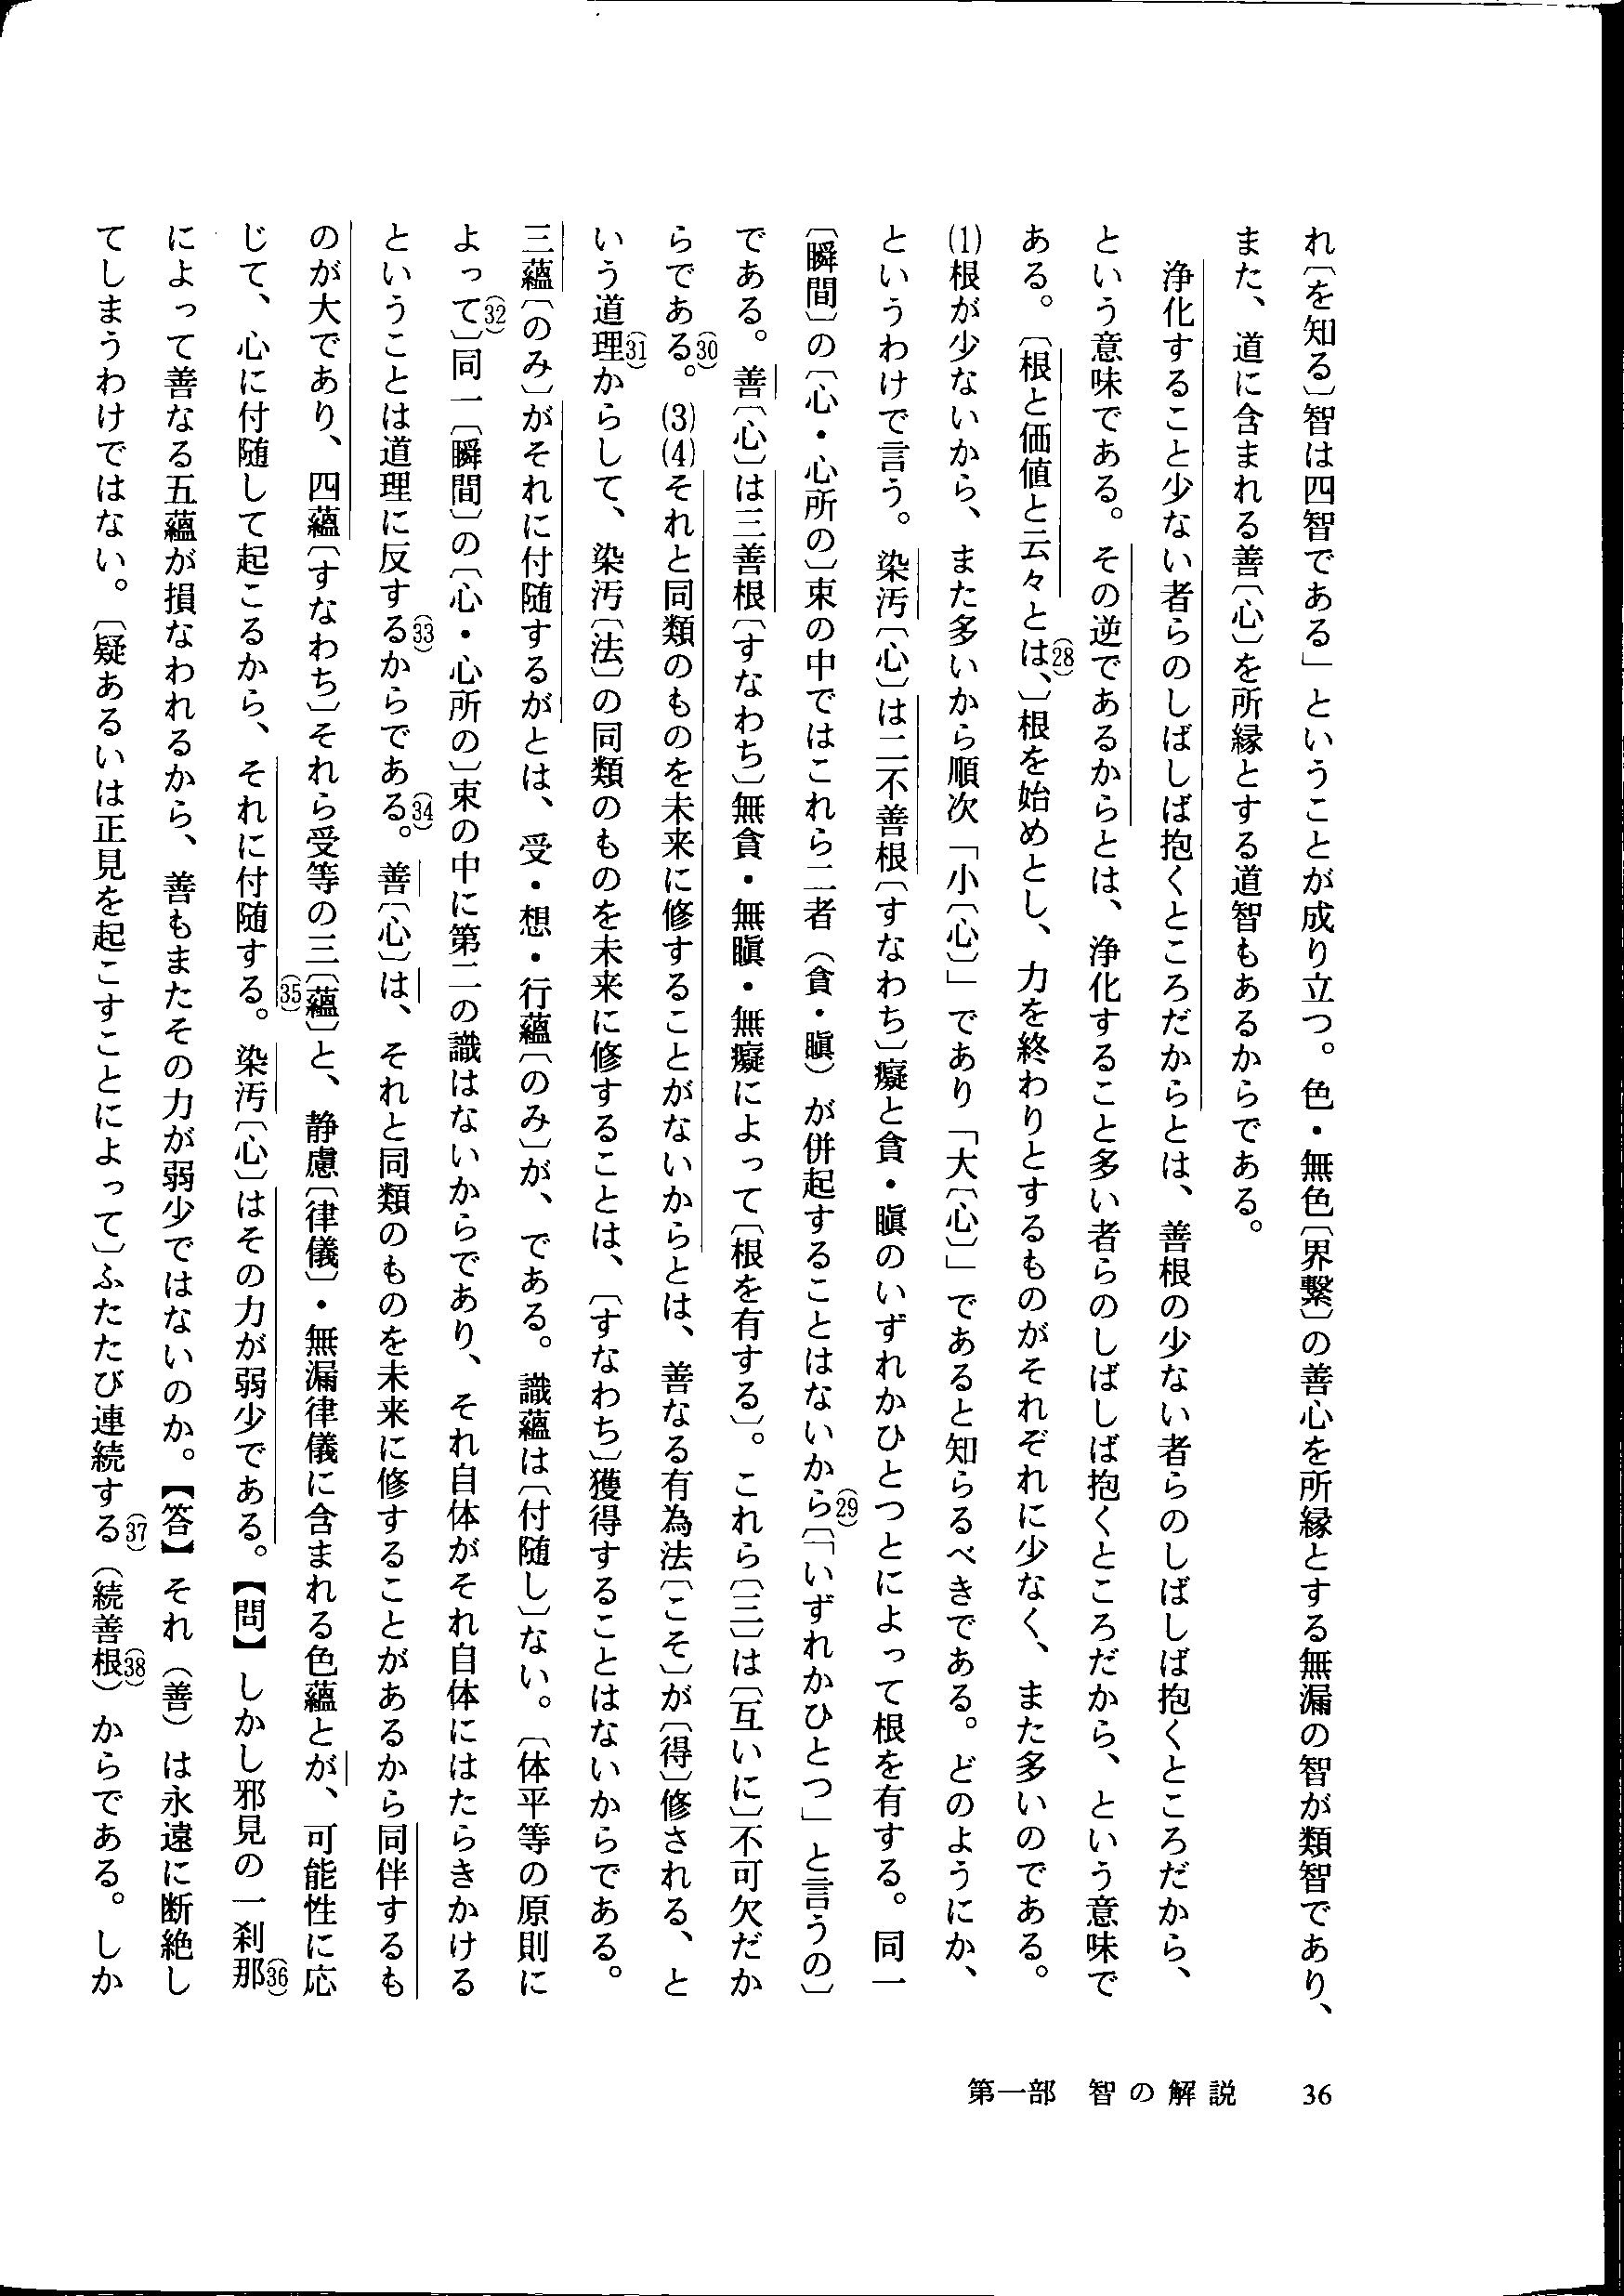 れ〔を知る〕智は四智である」ということが成り立つ。色・無色〔界繫〕の善心を所縁とする無漏の智が類智であり、
また、道に含まれる善〔心〕を所縁とする道智もあるからである。
浄化すること少ない者らのしばしば抱くところだからとは、善根の少ない者らのしばしば抱くところだから、
という意味である。その逆であるからとは、浄化すること多い者らのしばしば抱くところだから、という意味で
ある。〔根と価値と云々とは、(28)〕根を始めとし、力を終わりとするものがそれぞれに少なく、また多いのである。
(1)根が少ないから、また多いから順次「小〔心〕」であり「大〔心〕」であると知らるべきである。どのようにか、
というわけで言う。染汚〔心〕は二不善根〔すなわち〕癡と貪・瞋のいずれかひとつとによって根を有する。同一
〔瞬間〕の〔心・心所の〕束の中ではこれら二者（貪・瞋）が併起することはないから(29)〔「いずれかひとつ」と言うの〕
である。善〔心〕は三善根〔すなわち〕無貪・無瞋・無癡によって〔根を有する〕。これら〔三〕は〔互いに〕不可欠だか
らである(30)。(3)(4)それと同類のものを未来に修することがないからとは、善なる有為法〔こそ〕が〔得〕修される、と
いう道理(31)からして、染汚〔法〕の同類のものを未来に修することは、〔すなわち〕獲得することはないからである。
三蘊〔のみ〕がそれに付随するがとは、受・想・行蘊〔のみ〕が、である。識蘊は〔付随し〕ない。〔体平等の原則に
よって(32)〕同一〔瞬間〕の〔心・心所の〕束の中に第二の識はないからであり、それ自体がそれ自体にはたらきかける
ということは道理に反する(33)からである(34)。善〔心〕は、それと同類のものを未来に修することがあるから同伴するも
のが大であり、四蘊〔すなわち〕それら受等の三〔蘊〕(35)と、静慮〔律儀〕・無漏律儀に含まれる色蘊とが、可能性に応
じて、心に付随して起こるから、それに付随する。染汚〔心〕はその力が弱少である。【問】しかし邪見の一刹那(36)
によって善なる五蘊が損なわれるから、善もまたその力が弱少ではないのか。【答】それ（善）は永遠に断絶し
てしまうわけではない。〔疑あるいは正見を起こすことによって〕ふたたび連続する(37)（続善根(38)）からである。しか
第一部　智の解説　36